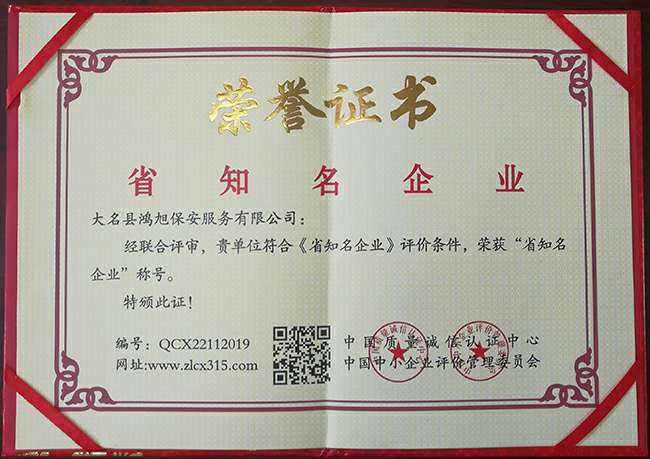 荣誉证书
省知名企业
大名县鸿旭保安服务有限公司：
经联合评审，贵单位符合《省知名企业》评价条件，荣获“省知名
企业”称号。
特颁此证！
编号：QCX22112019
网址:www.zlcx315.com
中国质量诚信认证中心
中国中小企业评价管理委员会